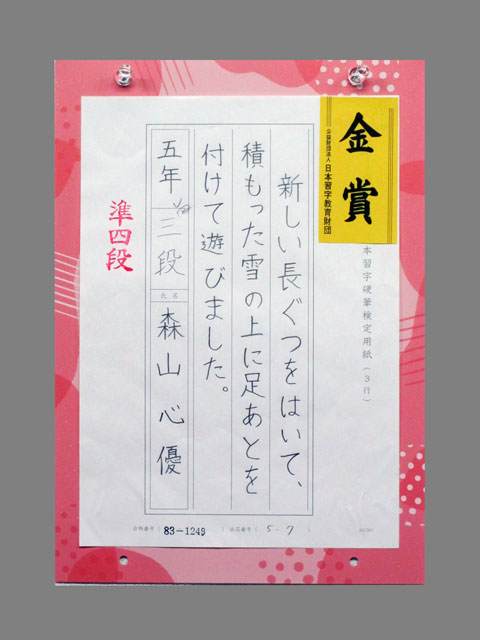 金賞
公益財団法人 日本習字教育財団
本習字硬筆検定用紙(3行)
新しい長ぐつをはいて、
積もった雪の上に足あとを
付けて遊びました。
五年 三段 氏名 森山心優
準四段
合格番号( 83-1249 ) 出品番号( 5-7 )